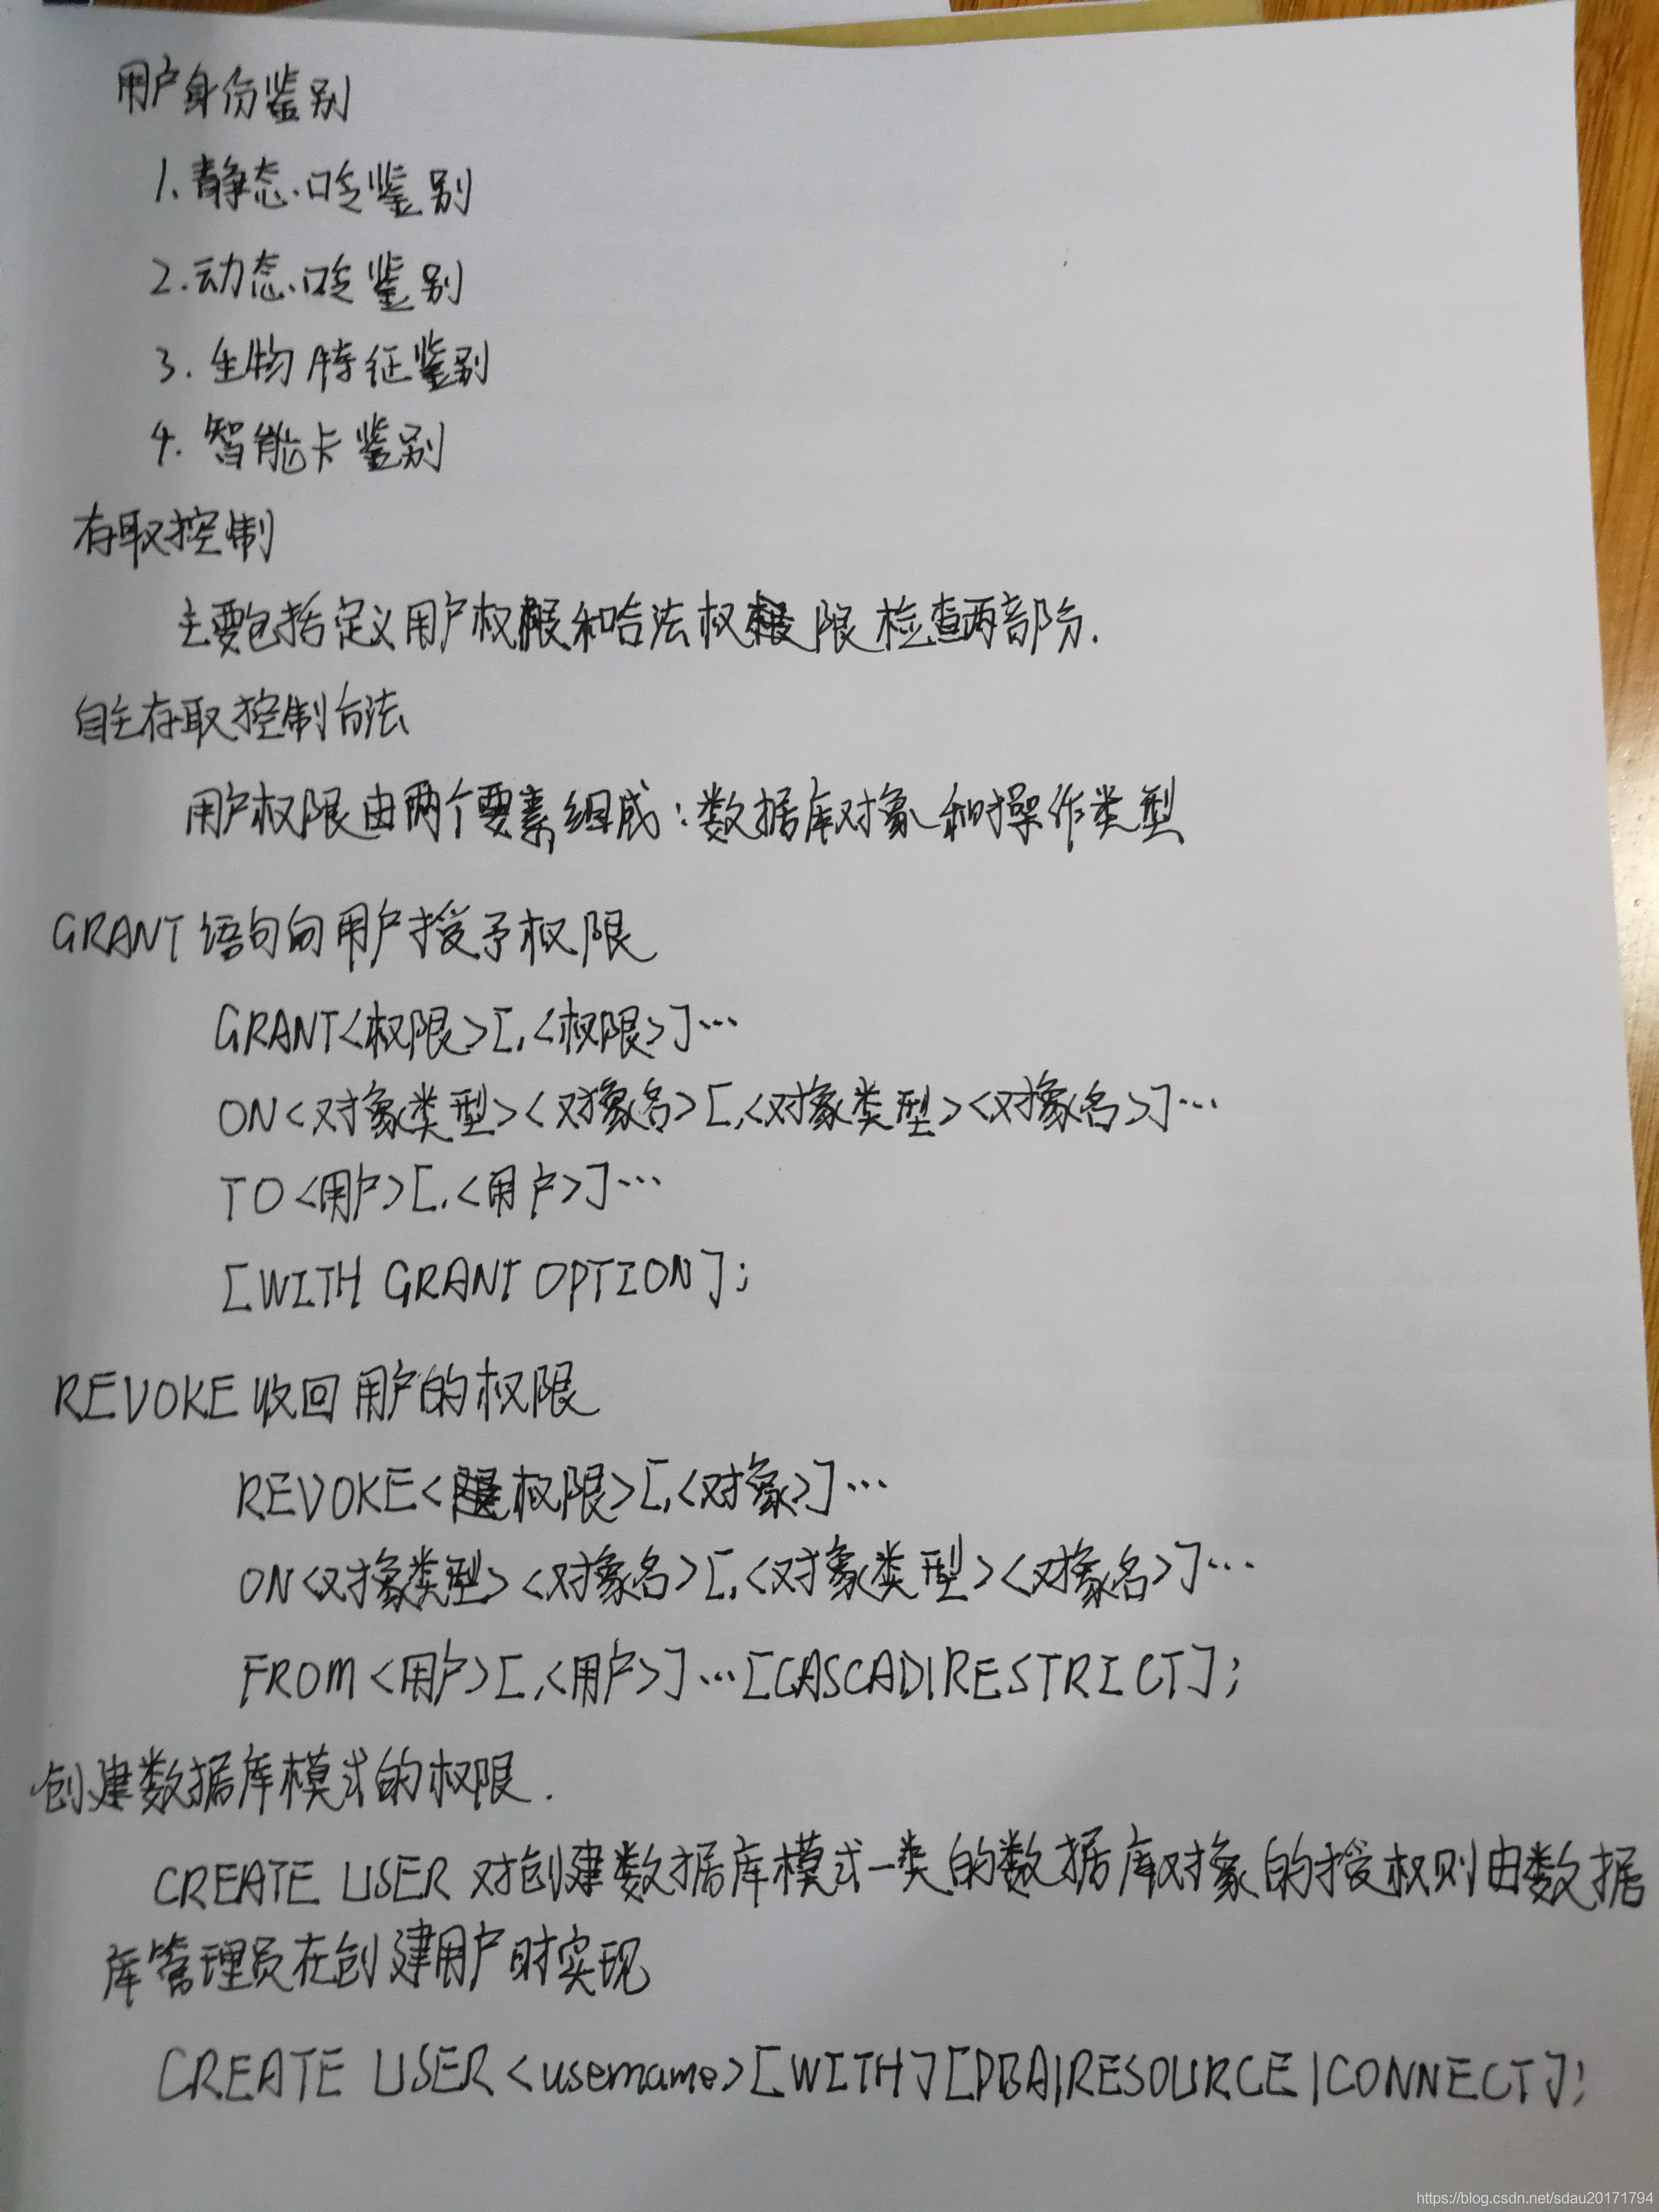 用户身份鉴别
1.静态口令鉴别
2.动态口令鉴别
3.生物特征鉴别
4.智能卡鉴别
存取控制
主要包括定义用户权限和合法权限检查两部分.
自主存取控制方法
用户权限由两个要素组成:数据库对象和操作类型
GRANT语句向用户授予权限
GRANT<权限>[,<权限>]…
ON<对象类型><对象名>[,<对象类型><对象名>]…
TO<用户>[,<用户>]…
[WITH GRANT OPTION];
REVOKE收回用户的权限
REVOKE<权限>[,<对象>]…
ON<对象类型><对象名>[,<对象类型><对象名>]…
FROM<用户>[,<用户>]…[CASCAD|RESTRICT];
创建数据库模式的权限.
CREATE USER 对创建数据库模式一类的数据库对象的授权则由数据
库管理员在创建用户时实现
CREATE USER<username>[WITH][DBA|RESOURCE|CONNECT];
https://blog.csdn.net/sdau20171794